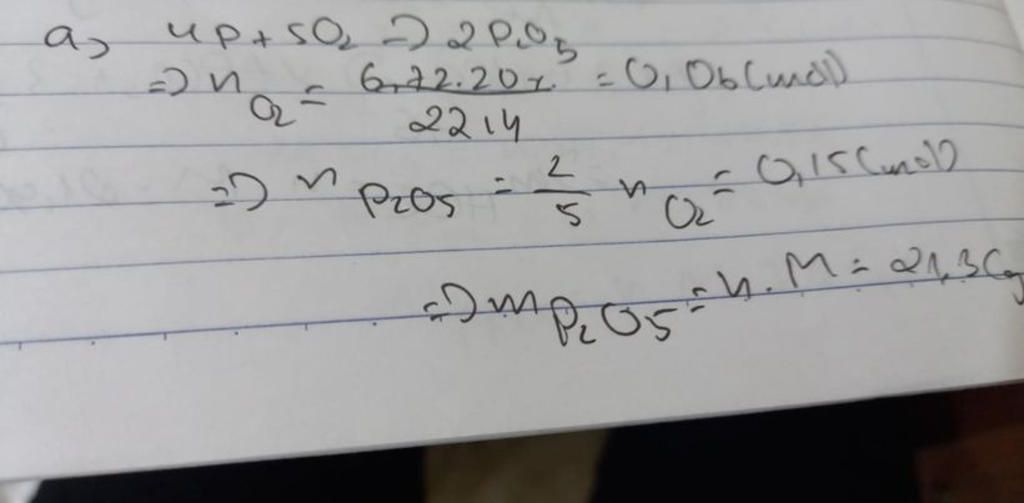 a) 4P + 5O2 => 2P2O5
=> nO2 = 6,72.20% / 22,4 = 0,06 (mol)
=> nP2O5 = 2/5 nO2 = 0,15 (mol)
=> mP2O5 = n.M = 21,3 (g